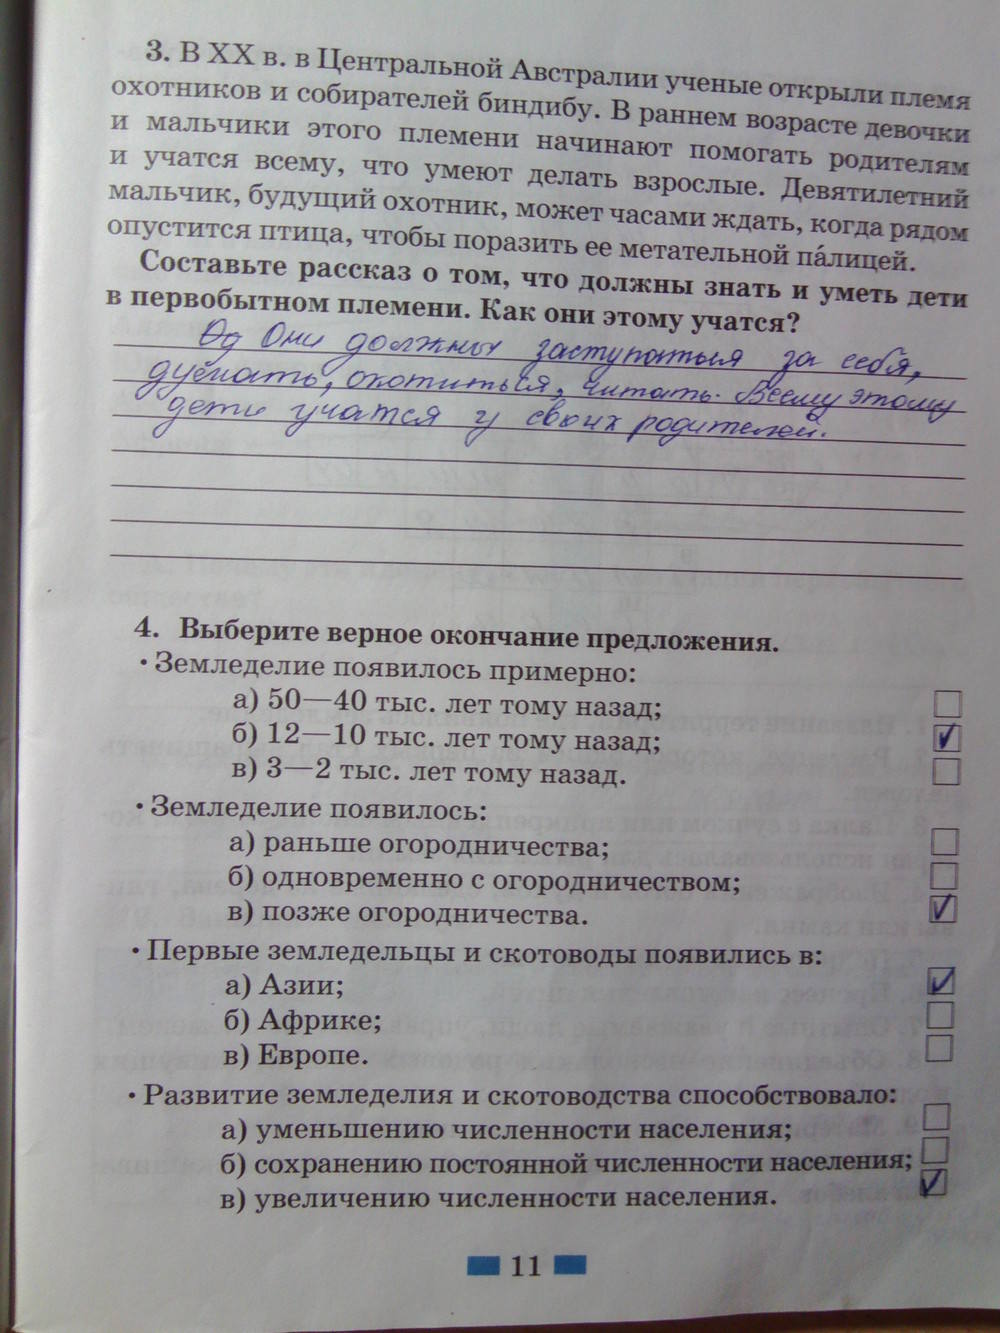 3. В XX в. в Центральной Австралии ученые открыли племя
охотников и собирателей биндибу. В раннем возрасте девочки
и мальчики этого племени начинают помогать родителям
и учатся всему, что умеют делать взрослые. Девятилетний
мальчик, будущий охотник, может часами ждать, когда рядом
опустится птица, чтобы поразить ее метательной па́лицей.
Составьте рассказ о том, что должны знать и уметь дети
в первобытном племени. Как они этому учатся?
Они должны заступаться за себя,
думать, охотиться, читать. Всему этому
дети учатся у своих родителей.
4. Выберите верное окончание предложения.
• Земледелие появилось примерно:
а) 50—40 тыс. лет тому назад;
б) 12—10 тыс. лет тому назад;
в) 3—2 тыс. лет тому назад.
• Земледелие появилось:
а) раньше огородничества;
б) одновременно с огородничеством;
в) позже огородничества.
• Первые земледельцы и скотоводы появились в:
а) Азии;
б) Африке;
в) Европе.
• Развитие земледелия и скотоводства способствовало:
а) уменьшению численности населения;
б) сохранению постоянной численности населения;
в) увеличению численности населения.
11